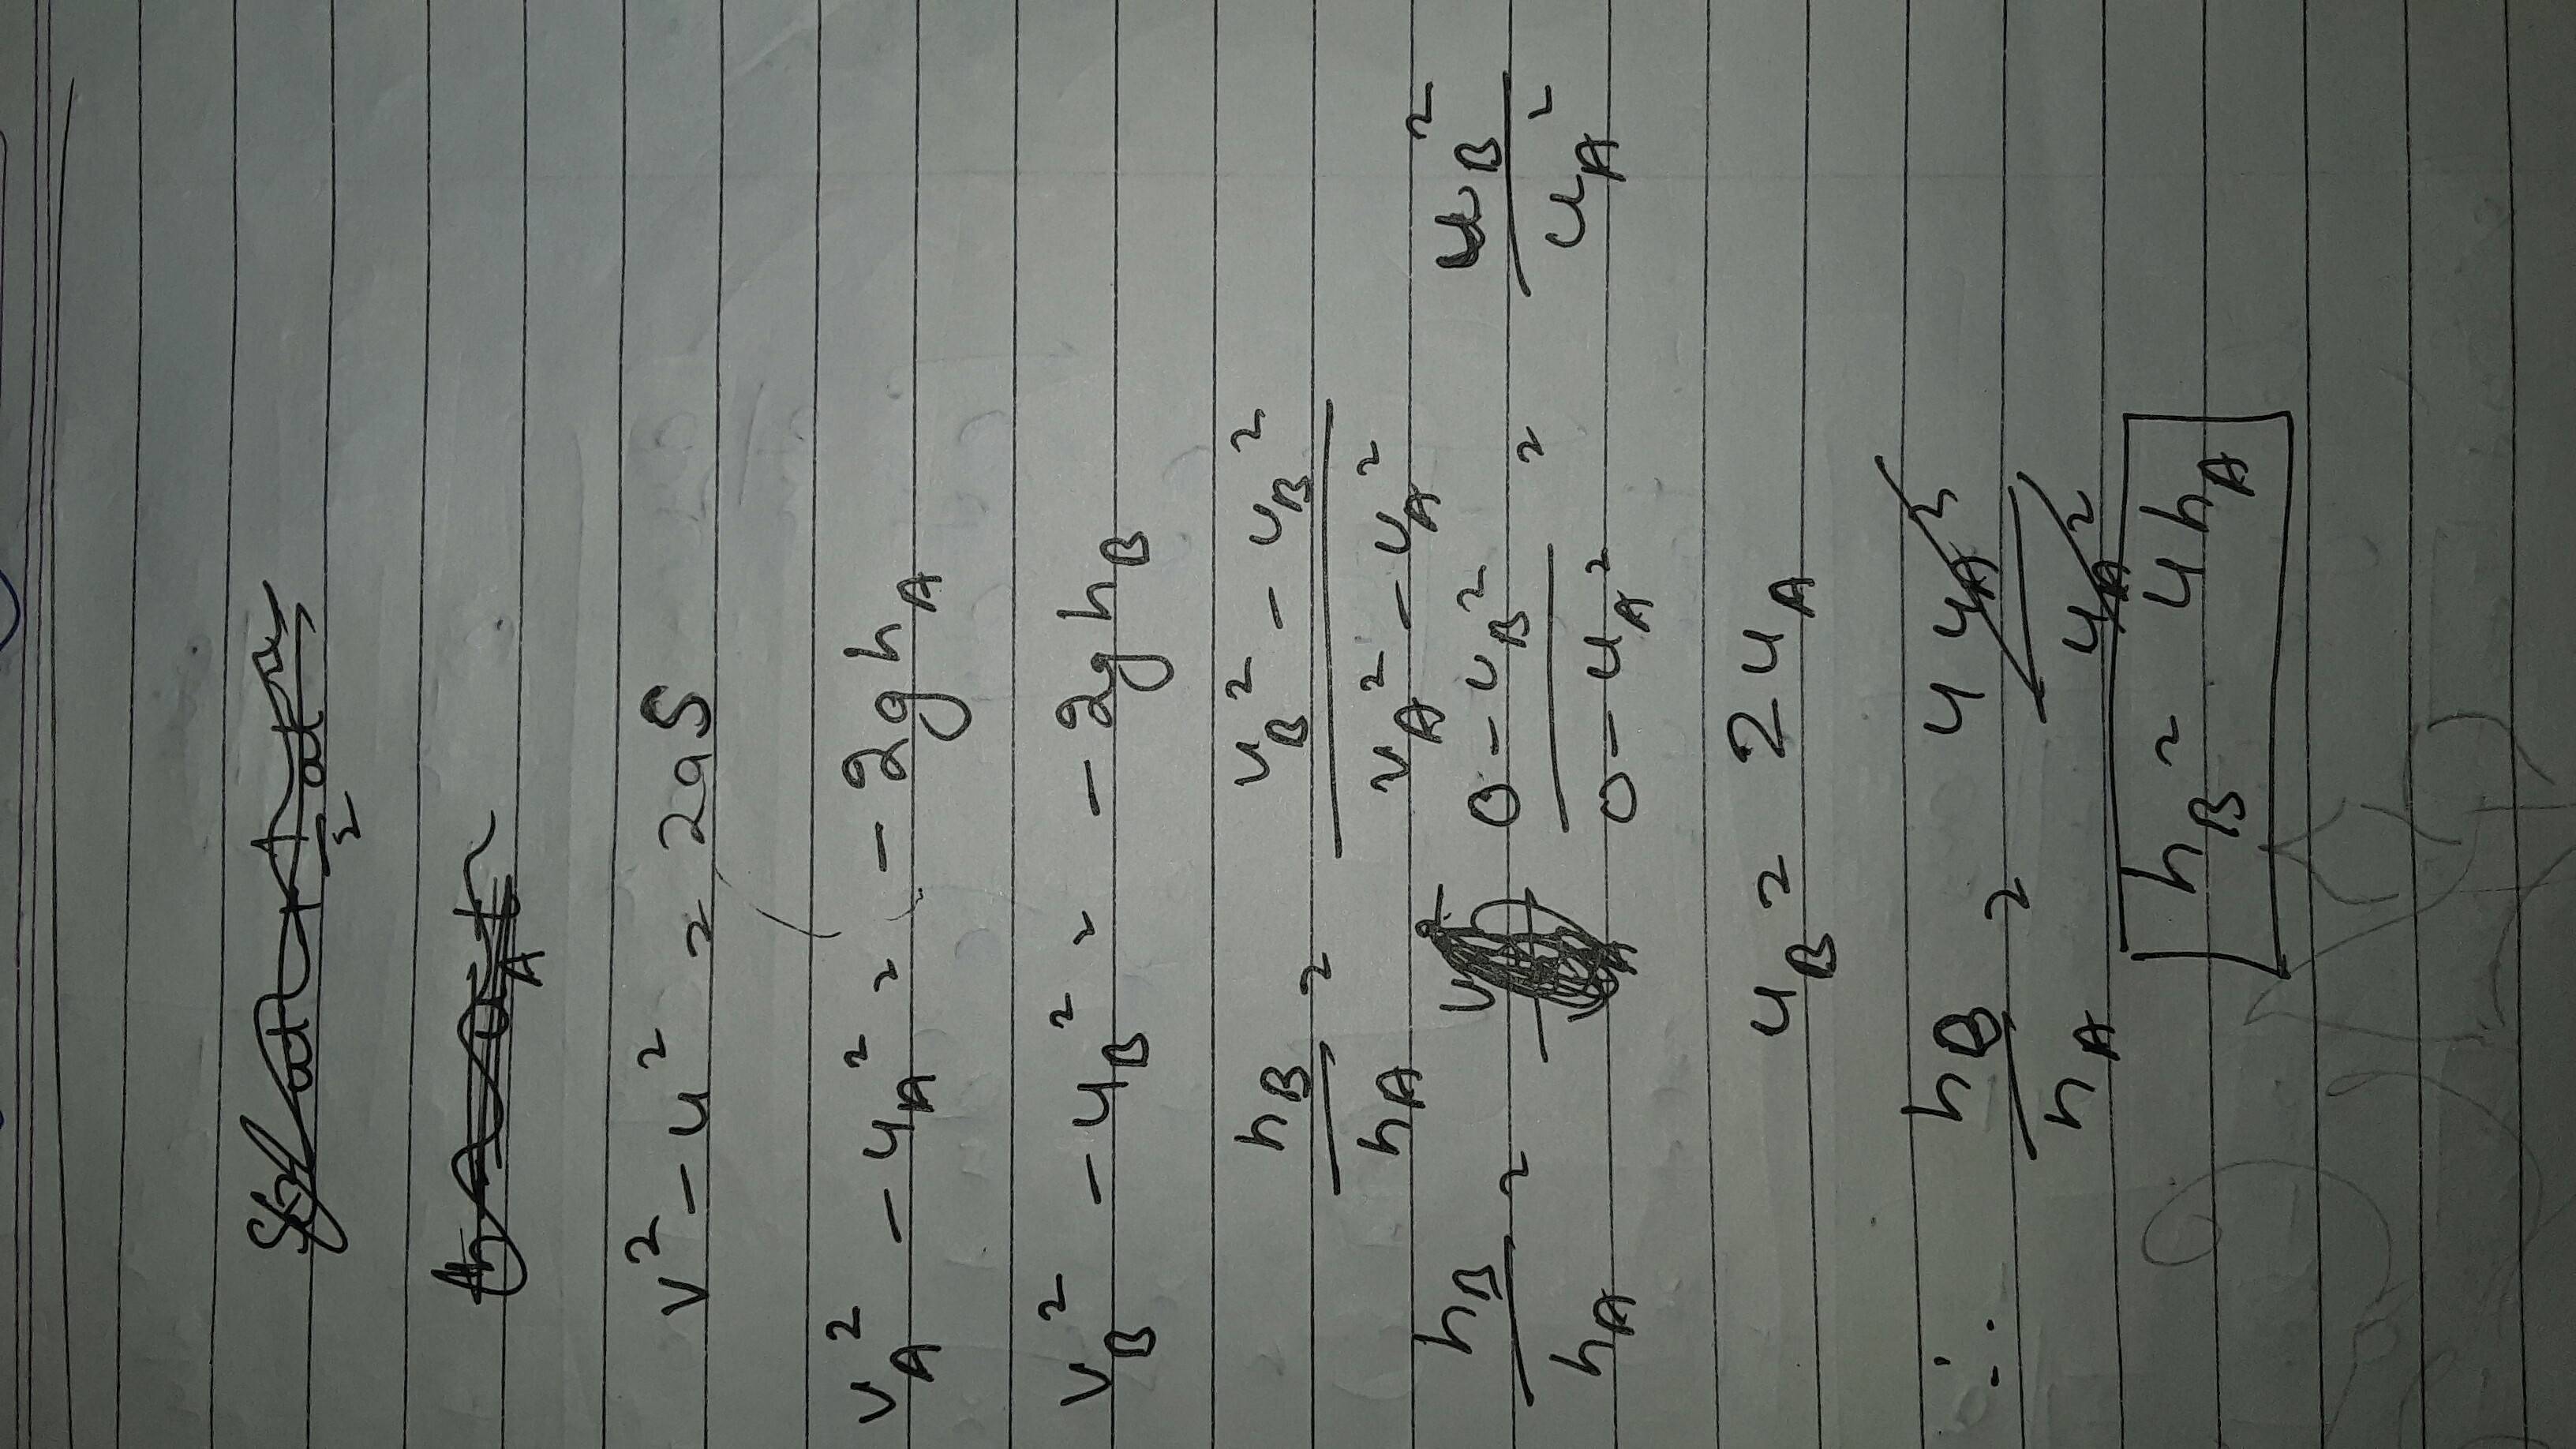 v² - u² = 2as
v_A² - u_A² = - 2gh_A
v_B² - u_B² = - 2gh_B
h_B/h_A = (v_B² - u_B²)/(v_A² - u_A²)
h_B/h_A = (0 - u_B²)/(0 - u_A²) = u_B²/u_A²
u_B = 2u_A
∴ h_B/h_A = 4u_A²/u_A²
h_B = 4h_A